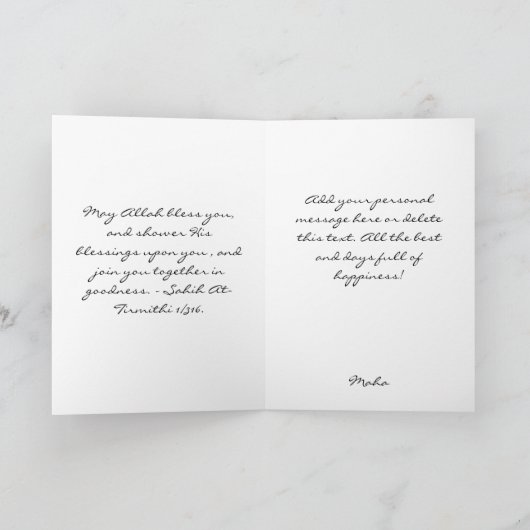 May Allah bless you,
and shower His
blessings upon you , and
join you together in
goodness. - Sahih At-
Tirmithi 1/316.
Add your personal
message here or delete
this text. All the best
and days full of
happiness!
Maha